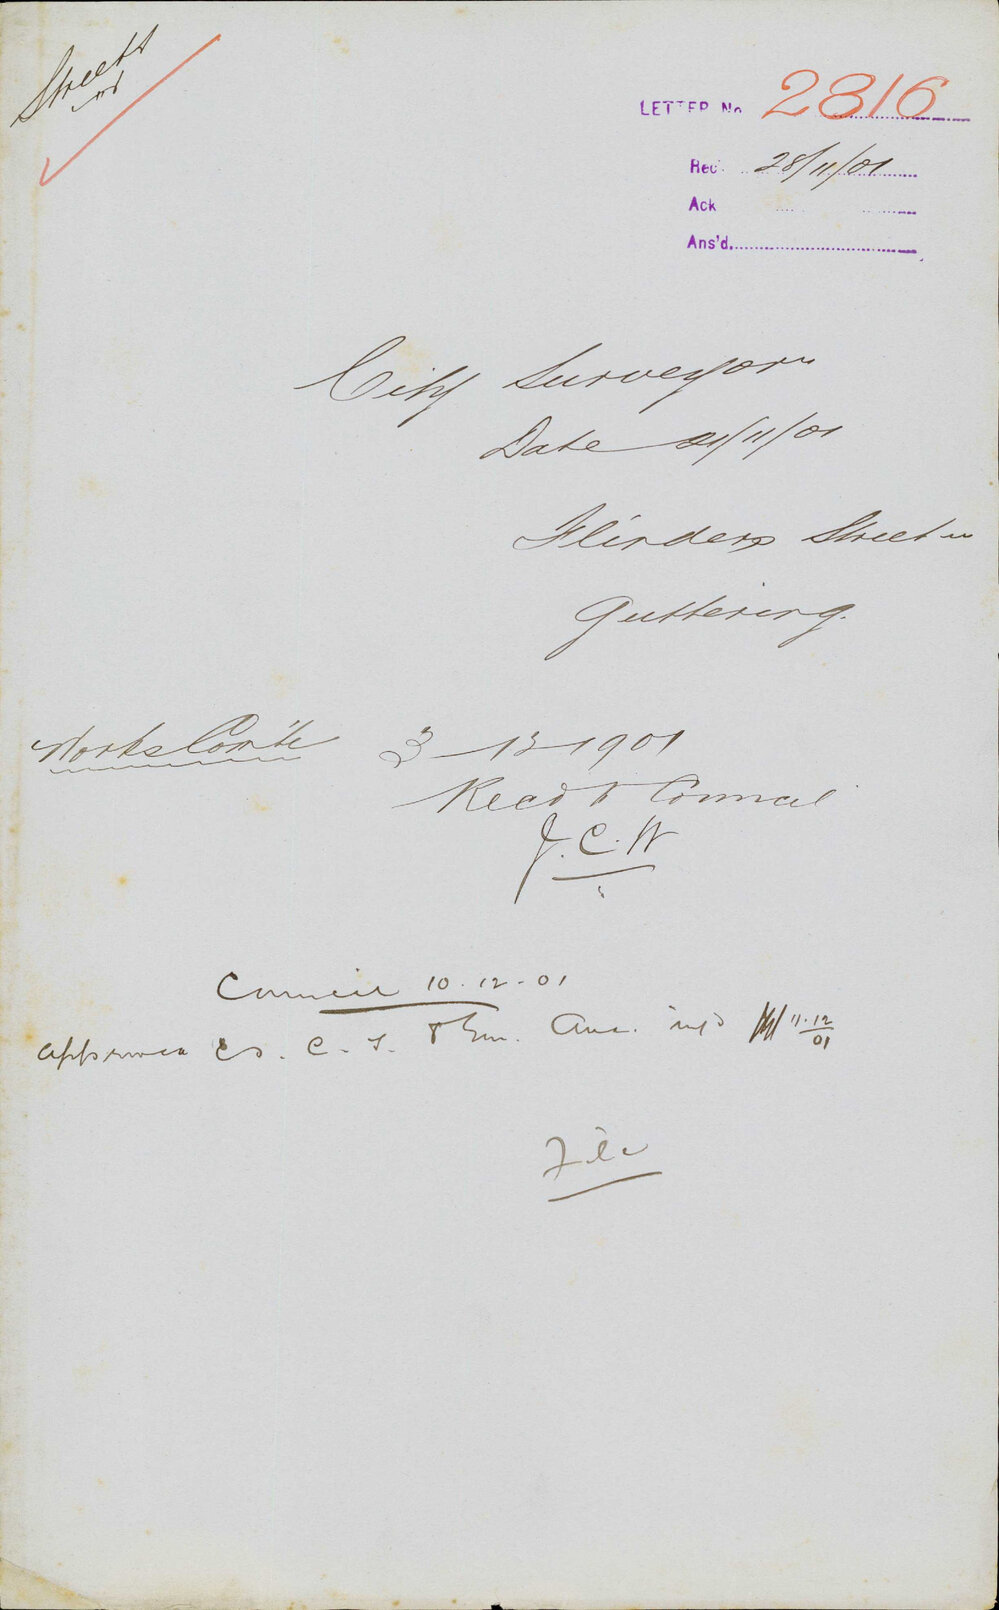 Streets
LETTER No 2816
Rec' 28/11/01
Ack
Ans'd.
City Surveyor
Date 21/11/01
Flinders Street
Guttering.
Works Com'te 3-12-1901
Recd to Council
J. C. W
Council 10.12.01
approved C S. C. T. & Em. Anc. inf'd 11.12/01
File